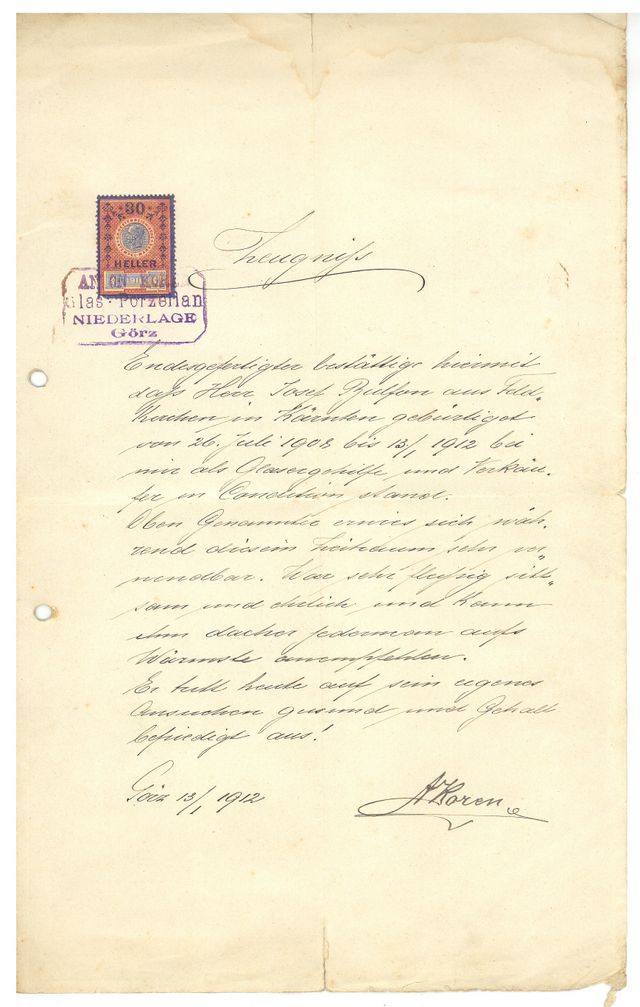 30
HELLER
1911
Zeugniss
ANTON KOREN
Glas-Porzellan
NIEDERLAGE
Görz
Endesgefertigter bestättigt hiermit
dass Herr Josef aus Feld-
kirchen in Kärnten gebürtiget
von 26. Juli 1908 bis 13/1 1912 bei
mir als Glasergehilfe und Verkäu-
fer in Condition stand.
Oben Genannter erwies sich wäh-
rend diesem Zeitraum sehr ver-
wendbar. War sehr fleissig sitt-
sam und ehrlich und kann
ihm dacher jederman aufs
Wärmste anempfehlen.
Er tritt heute auf sein eigenes
Ansuchen gesund und Gehalt
befriedigt aus!
Görz 13/1 1912
A Koren